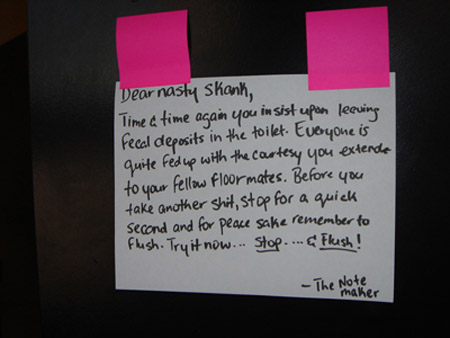 Dear nasty Skank,
Time & time again you insist upon leaving
fecal deposits in the toilet. Everyone is
quite fed up with the courtesy you extende
to your fellow floormates. Before you
take another shit, stop for a quick
second and for peace sake remember to
flush. Try it now... Stop.... & Flush!
- The Note
maker